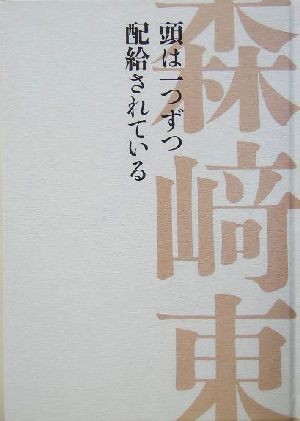 森﨑東
頭は一つずつ
配給されている